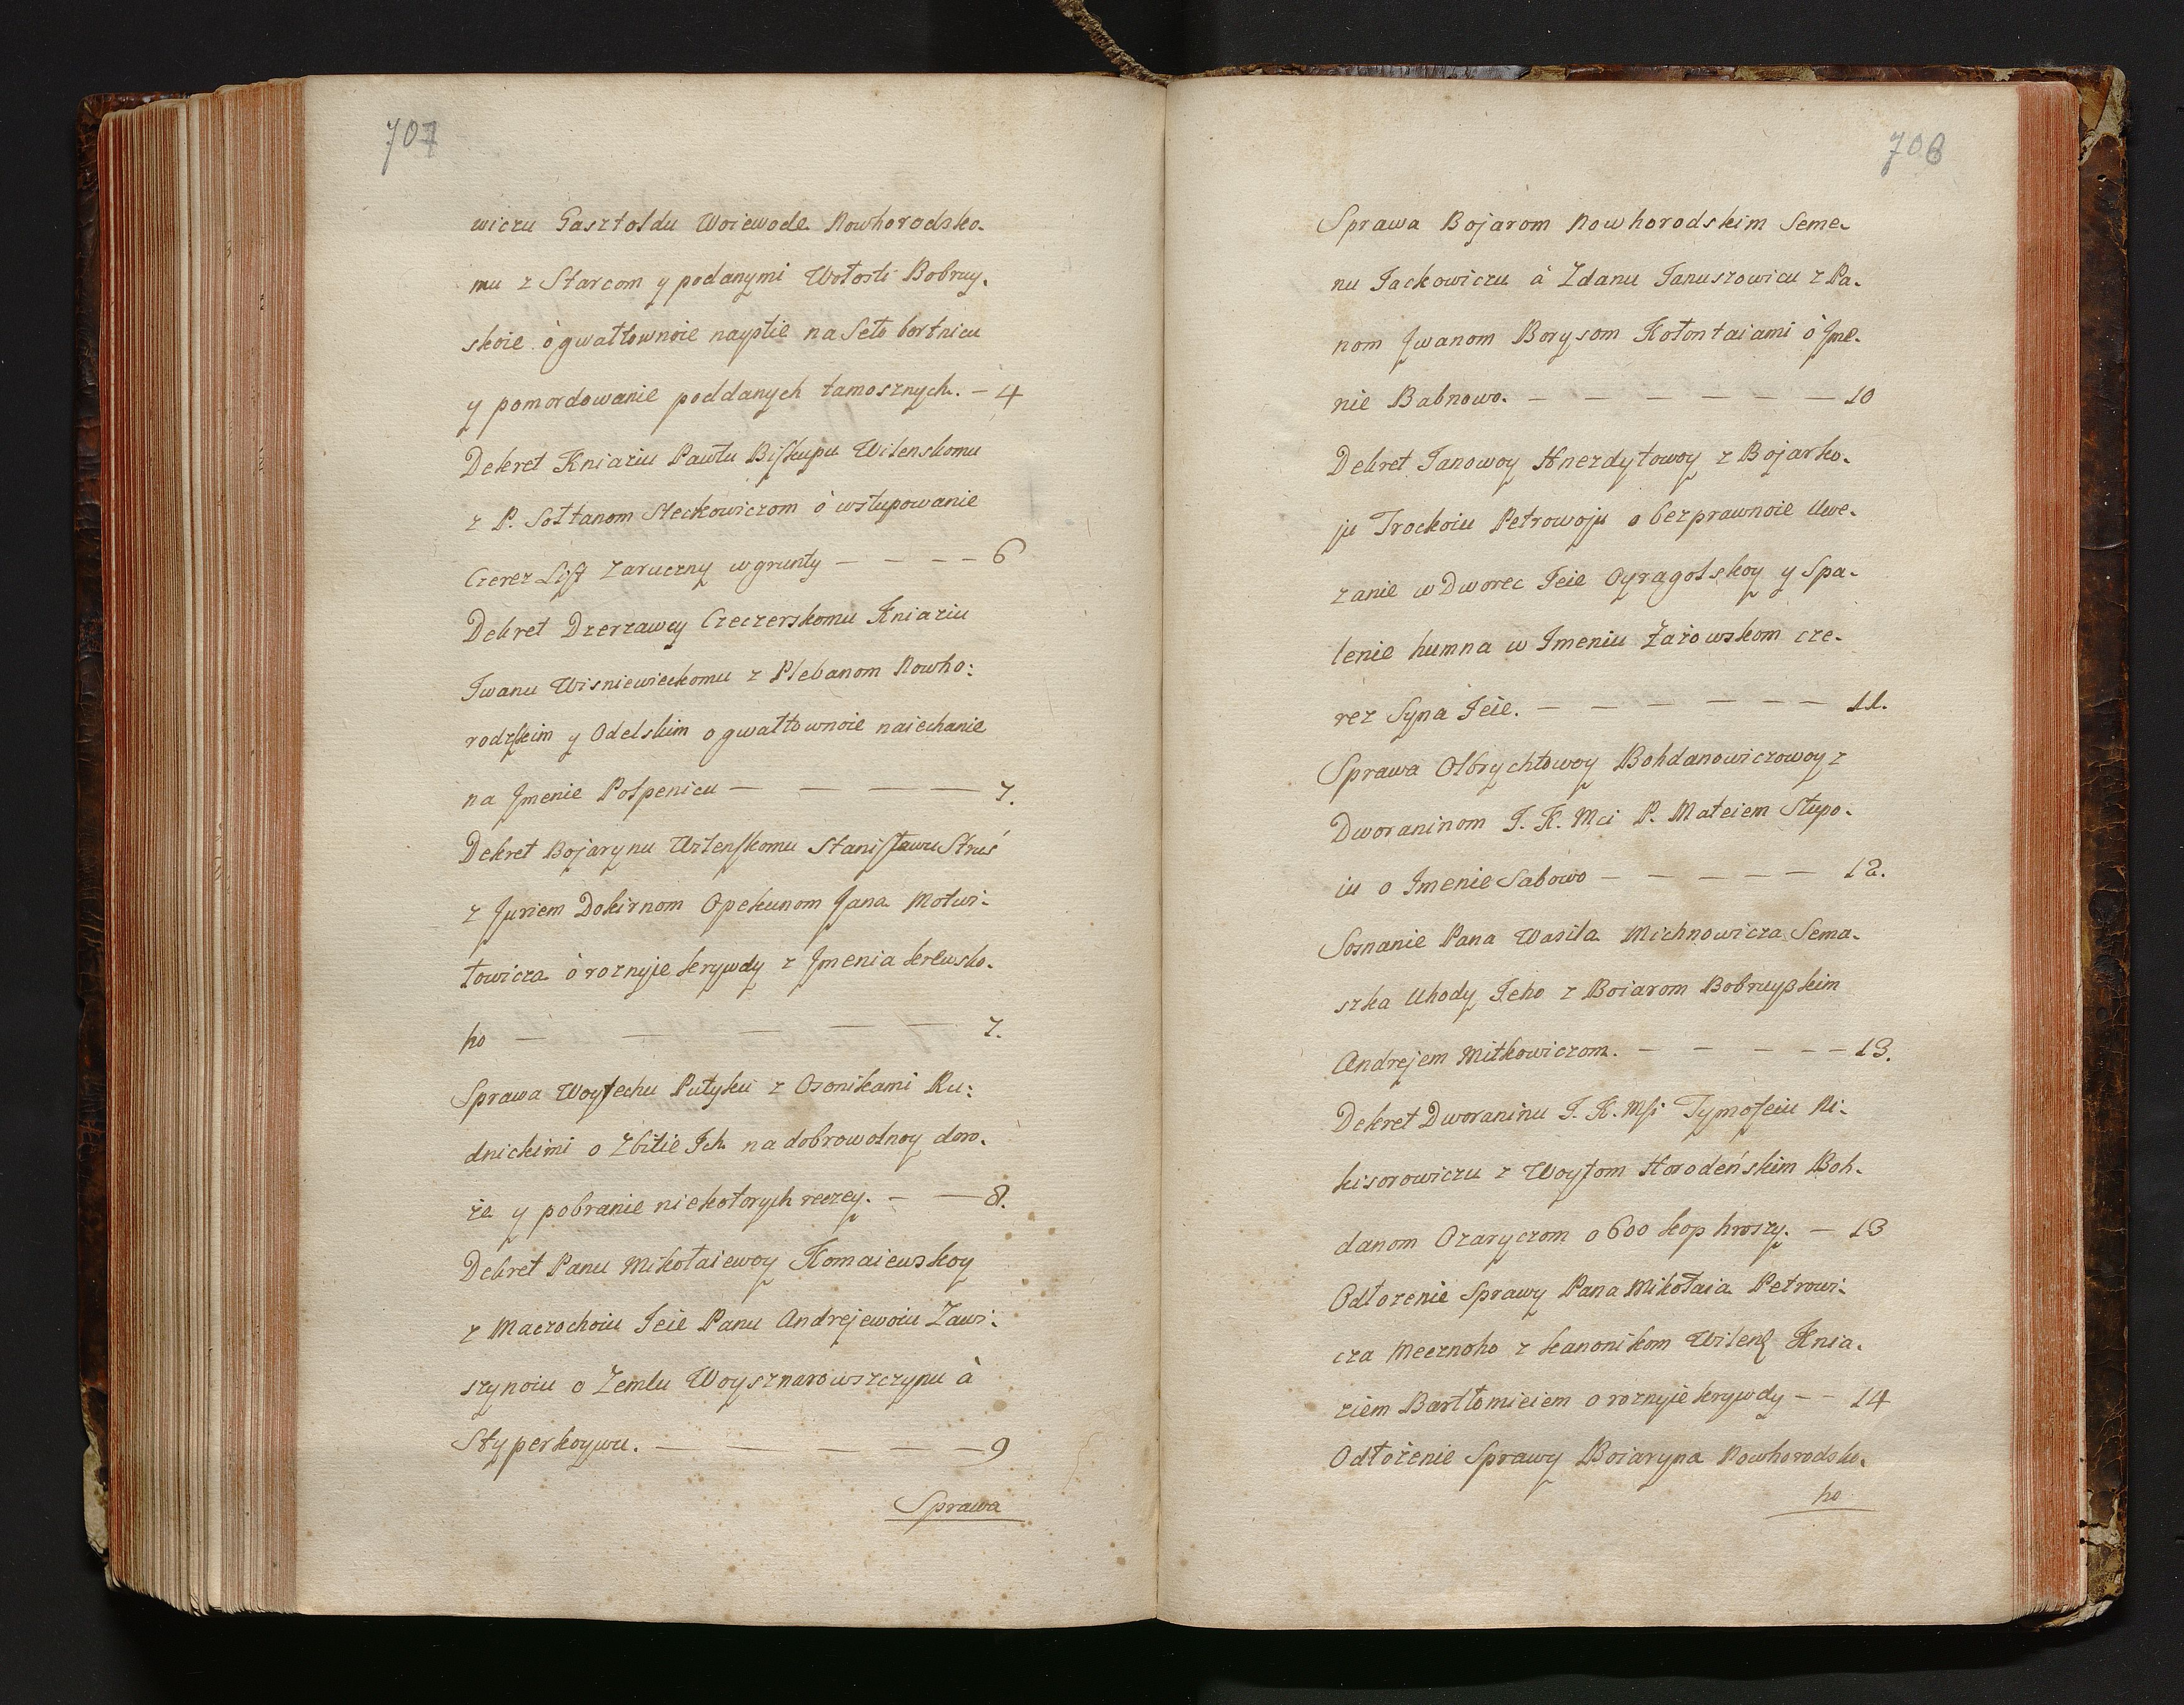 707
wiczu Gasztoldu Woiewode Nowhorodsko-
mu z Starcom y podanymi Wołosti Bobruy-
skoie ò gwałtownoie nayştie na Seło bortnicu
y pomordowanie poddanych tamosznych. — 4
Dekret Kniaziu Pawłu Biskupu Wilenskomu
z P. Sołtanom Steckowiczom ò wstupowanie
Czerez List Zaruczny w grunty — — — — 6
Dekret Dzerzawcy Czeczerskomu Kniaziu
Iwanu Wisniewieckomu z Plebanom Nowho:
rodzkim y Odelskim o gwałtownoie naiechanie
na Jmenie Pospenicu — — — — 7.
Dekret Bojarynu Wilenskomu Stanisławu Struś
z Juriem Dokirnom Opekunom Jana Motwi-
łowicza ò roznyje krywdy z Jmenia krewsko-
ho — — — — — 7.
Sprawa Woytechu Putyku z Osonikami Ru:
dnickimi o Zbitie Ich na dobrowolnoy doro-
ze y pobranie niekotorych reczey. — — 8.
Dekret Panu Mikołaiewoy Komaiewskoy
z Maczochoiu Ieie Panu Andrejewoiu Zawi-
szynoiu o Zemlu Woysznarowszczynu à
Styperkoywu. — — — — — 9
Sprawa
708
Sprawa Bojarom Nowhorodskim Seme-
nu Jackowiczu à Zdanu Januszowicu z Pa-
nom Jwanom Borysom Kołontaiami ò Jme-
nie Babnowo. — — — — — — 10
Dekret Janowoy Hnezdytowoy z Bojarko-
ju Trockoiu Petrowoju o bezprawnoie Uwe-
zanie w Dworec Ieie Oyragolskoy y Spa-
lenie humna w Jmeniu Zażowskom cze-
rez Syna Ieie. — — — — — — 11.
Sprawa Olbrychtowoy Bohdanowiczowoy z
Dworaninom J. K. Mci P. Mateiem Stupo-
iu o Jmenie Sabowo — — — — — 12.
Soznanie Pana Wasila Michnowicza Sema-
szka Uhody Ieho z Boiarom Bobruyskim
Andrejem Mitkowiczom. — — — — — 13.
Dekret Dworaninu J. K. Msi Tymofeiu Ni-
kisorowiczu z Woytom Horodeńskim Boh-
danom Ozaryczom o 600 kop hroszy. — 13
Odłozenie Sprawy Pana Mikołaia Petrowi-
cza Mecznoho z kanonikom Wilensk Knia-
ziem Bartłomieiem o roznyje krywdy — — 14
Odłożenie Sprawy Boiaryna Nowhorodsko-
ho